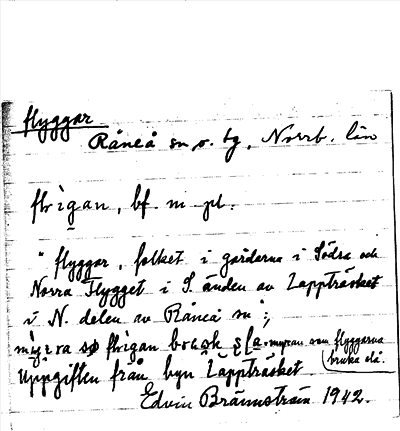 flyggar
Råneå sn o. tg, Norrb. län
flìgan, bf. m pl.
"flyggar, folket i gårdarna i Södra och
Norra Flygget i S. änden av Lappträsket
i N. delen av Råneå sn";
sø flìgan bruka myran som flyggarna
bruka slå.
Uppgiften från byn Lappträsket.
Edvin Brännström 1942.